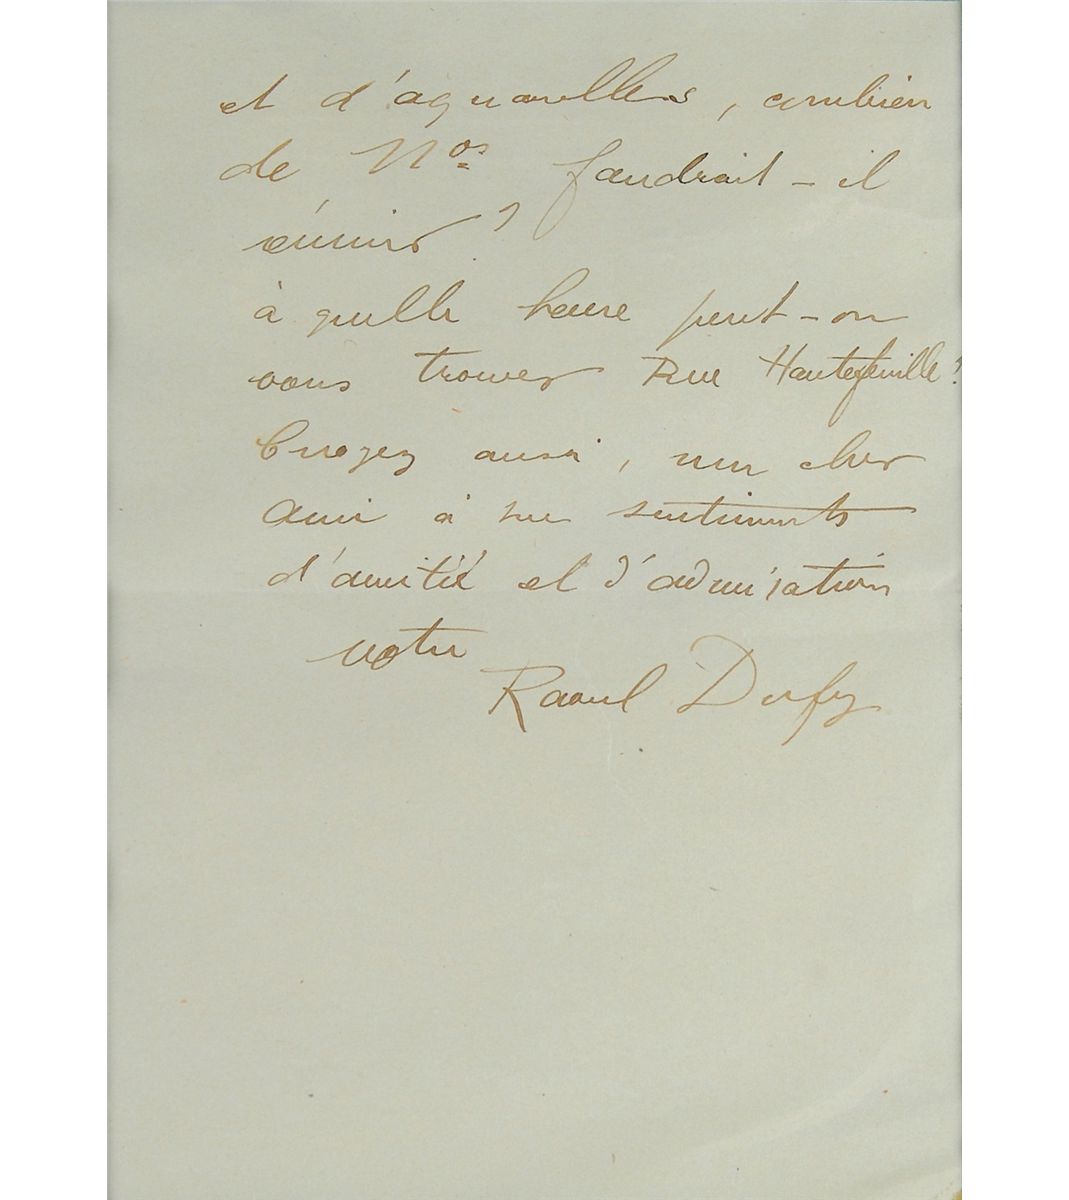 et d'aquarelles, combien
de Nos faudrait-il
réunir ?
à quelle heure peut-on
vous trouver Rue Hautefeuille ?
Croyez aussi, mon cher
ami à mes sentiments
d'amitié et d'admiration
votre
Raoul Dufy